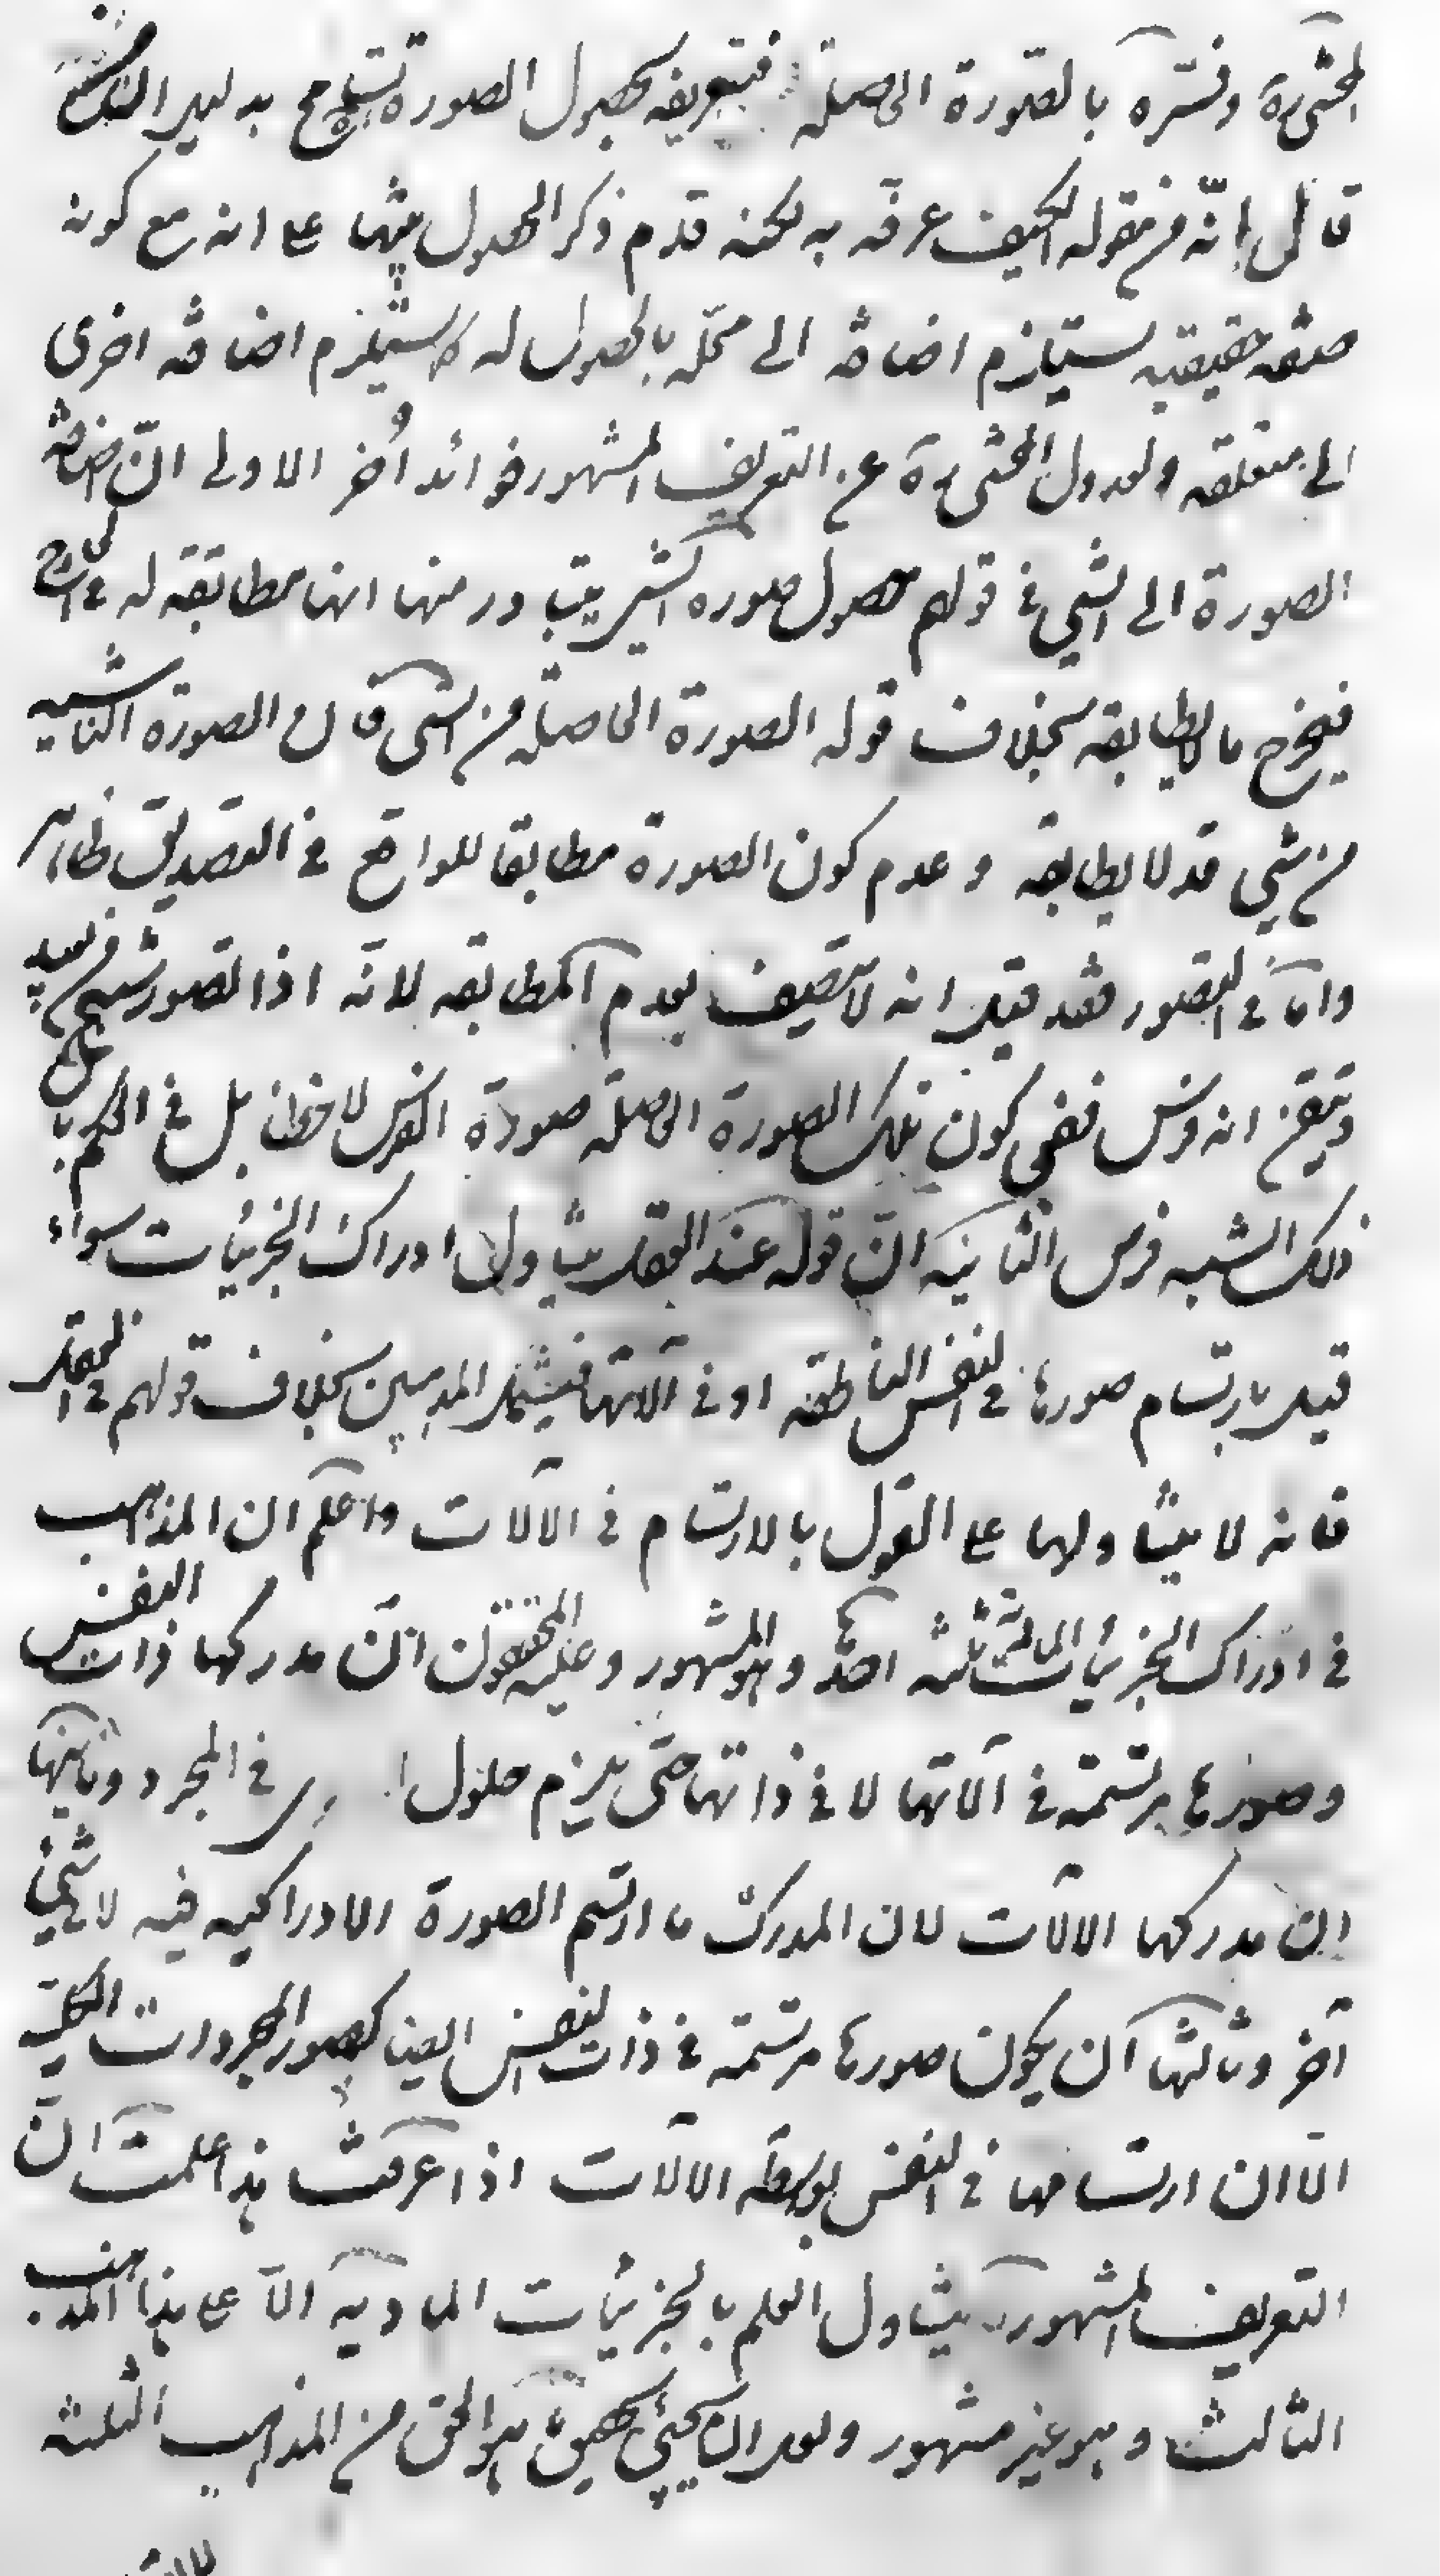 المحشي ره وفسره بالصورة الحاصلة فتعريفه بحصول الصورة تسامح بدليل
قال انه من مقوله الكيف عرفه به لكنه قدم ذكر الحصول تنبيها على انه مع كونه
صفة حقيقيه يستلزم اضافة الى محله بالحصول له كما يستلزم اضافة اخرى
الى متعلقه ولعدول المحشي ره عن التعريف المشهور فوائد أخر الاولى ان اضافة
الصورة الى الشي في قولهم حصول صوره الشي يتبادر منها انها مطابقه له في
فيخرج ما لا يطابقه بخلاف قوله الصورة الحاصله من الشي فان الصورة الناشيه
من شي قد لا يطابقه وعدم كون الصورة مطابقا للواقع في التصديق ظاهر
واما في التصور فقد قيل انه لا يتصف بعدم المطابقه لانه اذا تصور شبح من بعيد
وتيقن انه فرس ففي كون تلك الصورة الحاصله صورة الفرس لا خطا بل في الحكم بان
ذلك الشبح فرس الثانيه ان قوله عند العقل يتناول ادراك الجزئيات سواء
قيل بارتسام صورها في النفس الناطقه او في آلاتها فيشمل المذهبين بخلاف قولهم في العقل
فانه لا يتناولها على القول بالارتسام في الآلات واعلم ان المذهب
في ادراك الجزئيات المادية ثلثه احدها وهو المشهور وعليه المحققون ان مدركها ذات النفس
وصورها مرتسمة في آلاتها لا في ذاتها حتى يلزم حلول في المجرد وثانيها
ان مدركها الآلات لان المدرك ما ارتسم الصورة الادراكيه فيه لا شي
آخر وثالثها ان يكون صورها مرتسمة في ذات النفس ايضا كصور المجردات الكليه
الا ان ارتسامها في النفس بواسطه الآلات اذا عرفت هذا علمت ان
التعريف المشهور يتناول العلم بالجزئيات الماديه الا على هذا المذهب
الثالث وهو غير مشهور ولعل سيجئ تحقيق ما هو الحق من المذاهب الثلثه